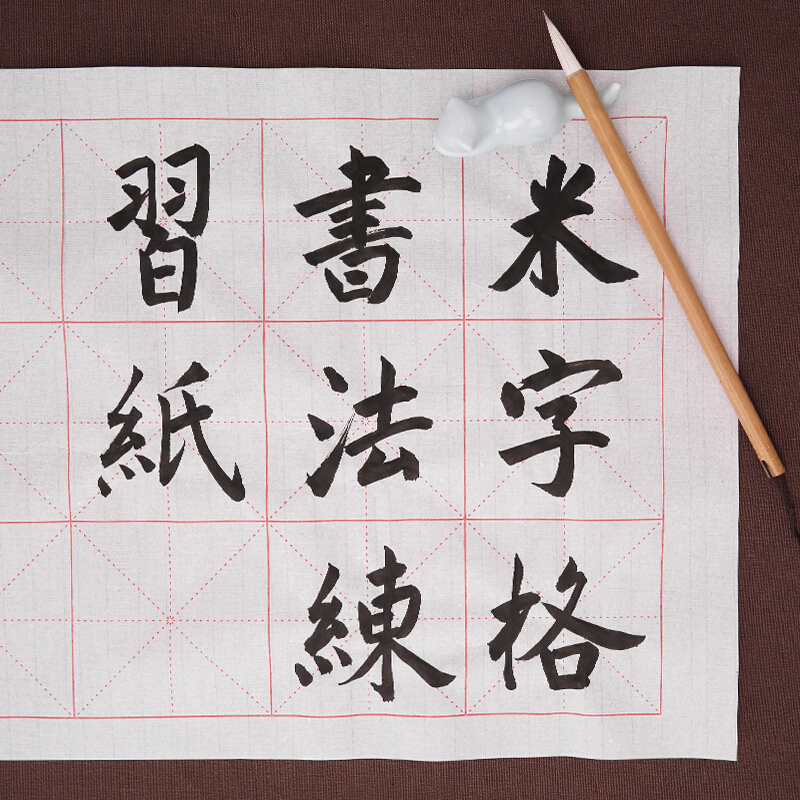 米字格
書法練
習紙